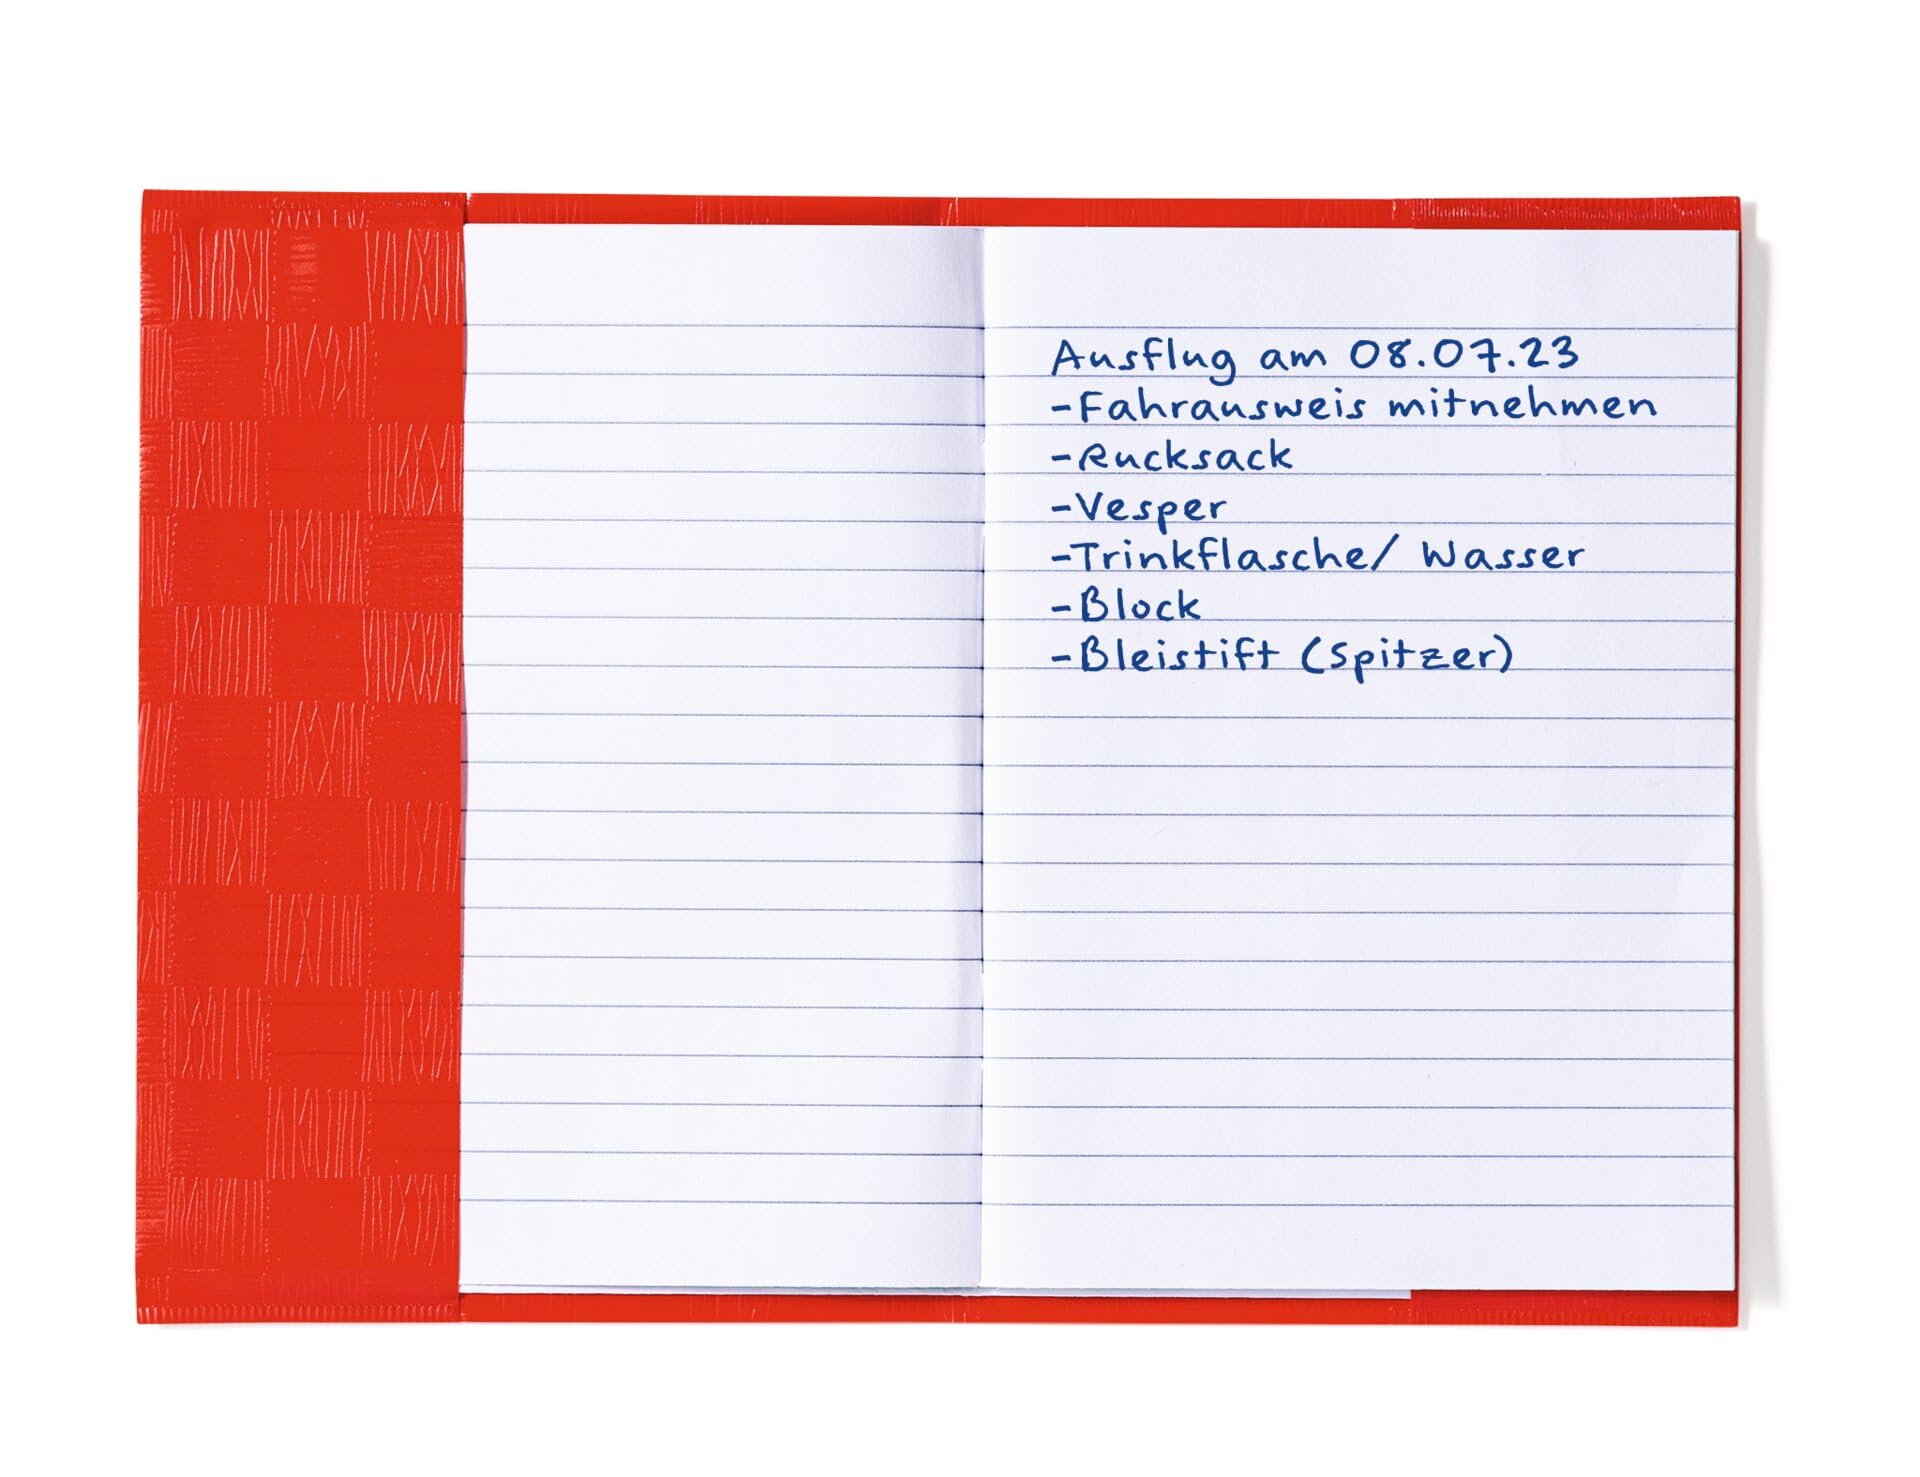 Ausflug am 08.07.23
-Fahrausweis mitnehmen
-Rucksack
-Vesper
-Trinkflasche/ Wasser
-Block
-Bleistift (Spitzer)